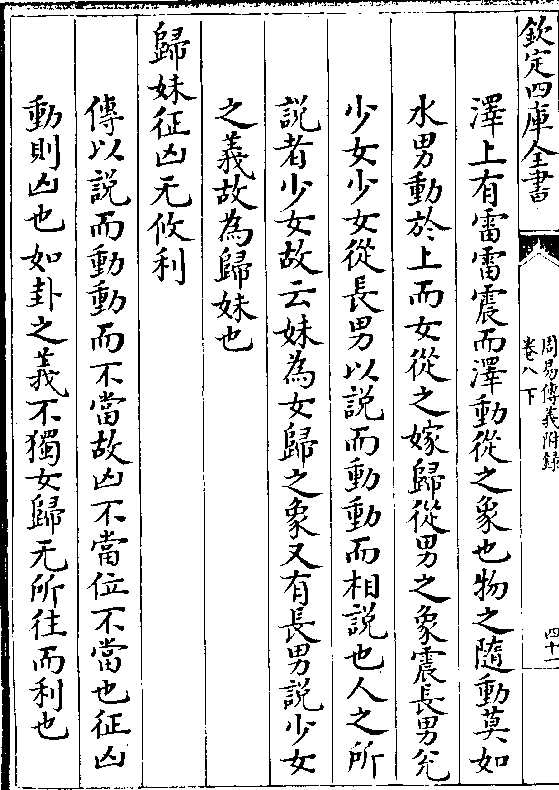 欽定四庫全書
周易傳義附錄
卷八下
四十一
澤上有雷雷震而澤動從之象也物之隨動莫如
水男動於上而女從之嫁歸從男之象震長男兊
少女少女從長男以説而動動而相説也人之所
説者少女故云妹為女歸之象又有長男説少女
之義故為歸妹也
歸妹征凶无攸利
傳以説而動動而不當故凶不當位不當也征凶
動則凶也如卦之義不獨女歸无所往而利也